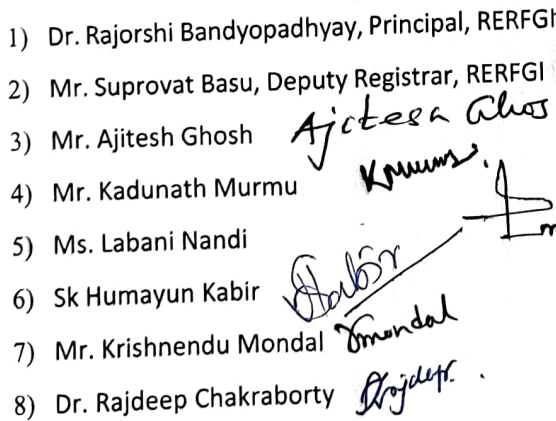 1) Dr. Rajorshi Bandyopadhyay, Principal, RERFGI
2) Mr. Suprovat Basu, Deputy Registrar, RERFGI
3) Mr. Ajitesh Ghosh Ajitesh Ghos
4) Mr. Kadunath Murmu
5) Ms. Labani Nandi
6) Sk Humayun Kabir Kabir
7) Mr. Krishnendu Mondal Kmondal
8) Dr. Rajdeep Chakraborty Rajdeep